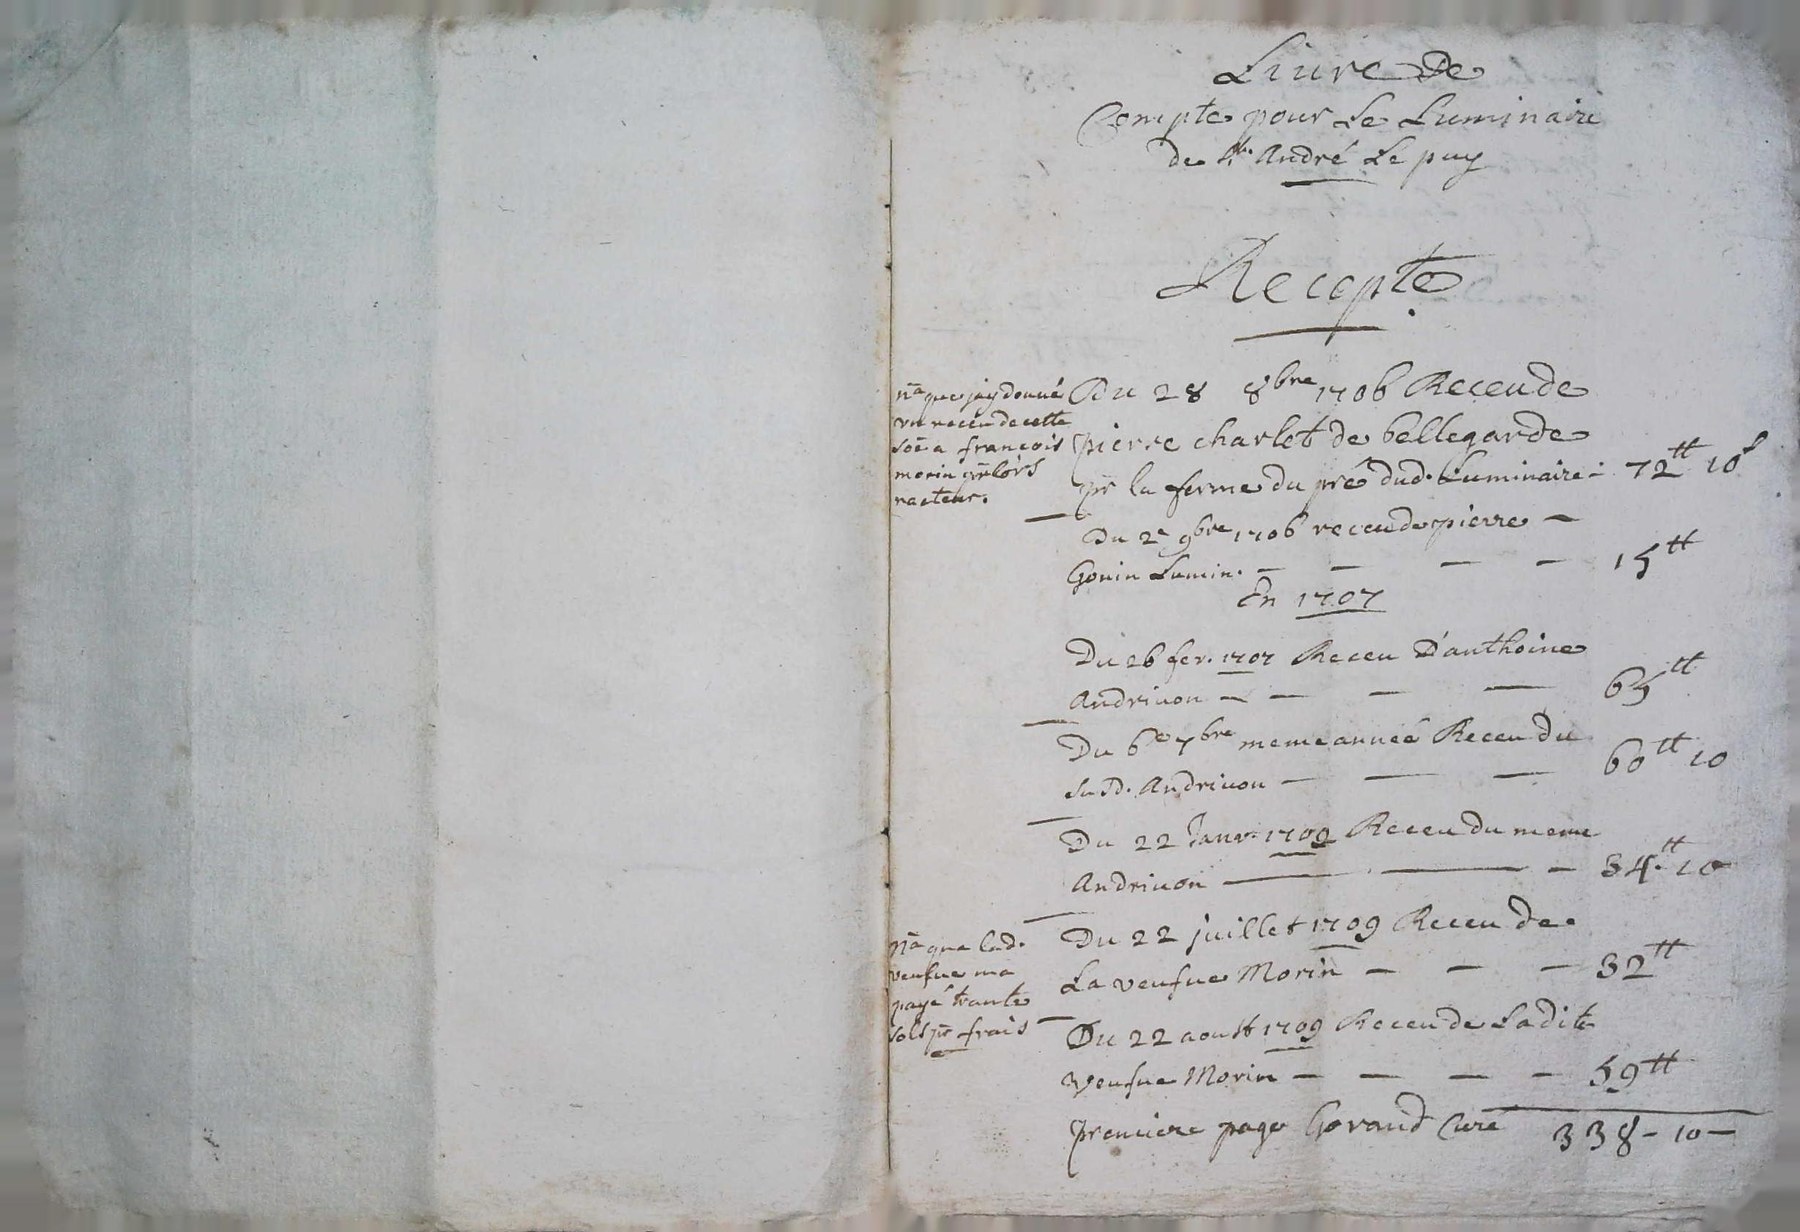 Livre de
Compte pour Le Luminaire
de St. André Le puy
Recepte
nā que jay donné
un receu de cette
soē a francois
morin pr lors
racteur.
Du 28 8bre 1706 Receu de
pierre charlet de bellegarde
pr la ferme du pré dud. Luminaire 72tt 10s
Du 2e 9bre 1706 receu de pierre
Gouin Lumin. 15tt
En 1707
Du 26 fer. 1707 Receu D'anthoine
Andrivon 65tt
Du 6e 7bre meme année Receu du
susd. Andrivon 60tt 10
Du 22 Janv. 1709 Receu du meme
Andrivon 34tt 10
nā que lad.
veufve ma
payé trante
sols pr frais
Du 22 juillet 1709 Receu de
La veufve Morin 32tt
Du 22 aoust 1709 Receu de Ladite
veufve Morin 59tt
premiere page Gorand Curé 338 - 10 -